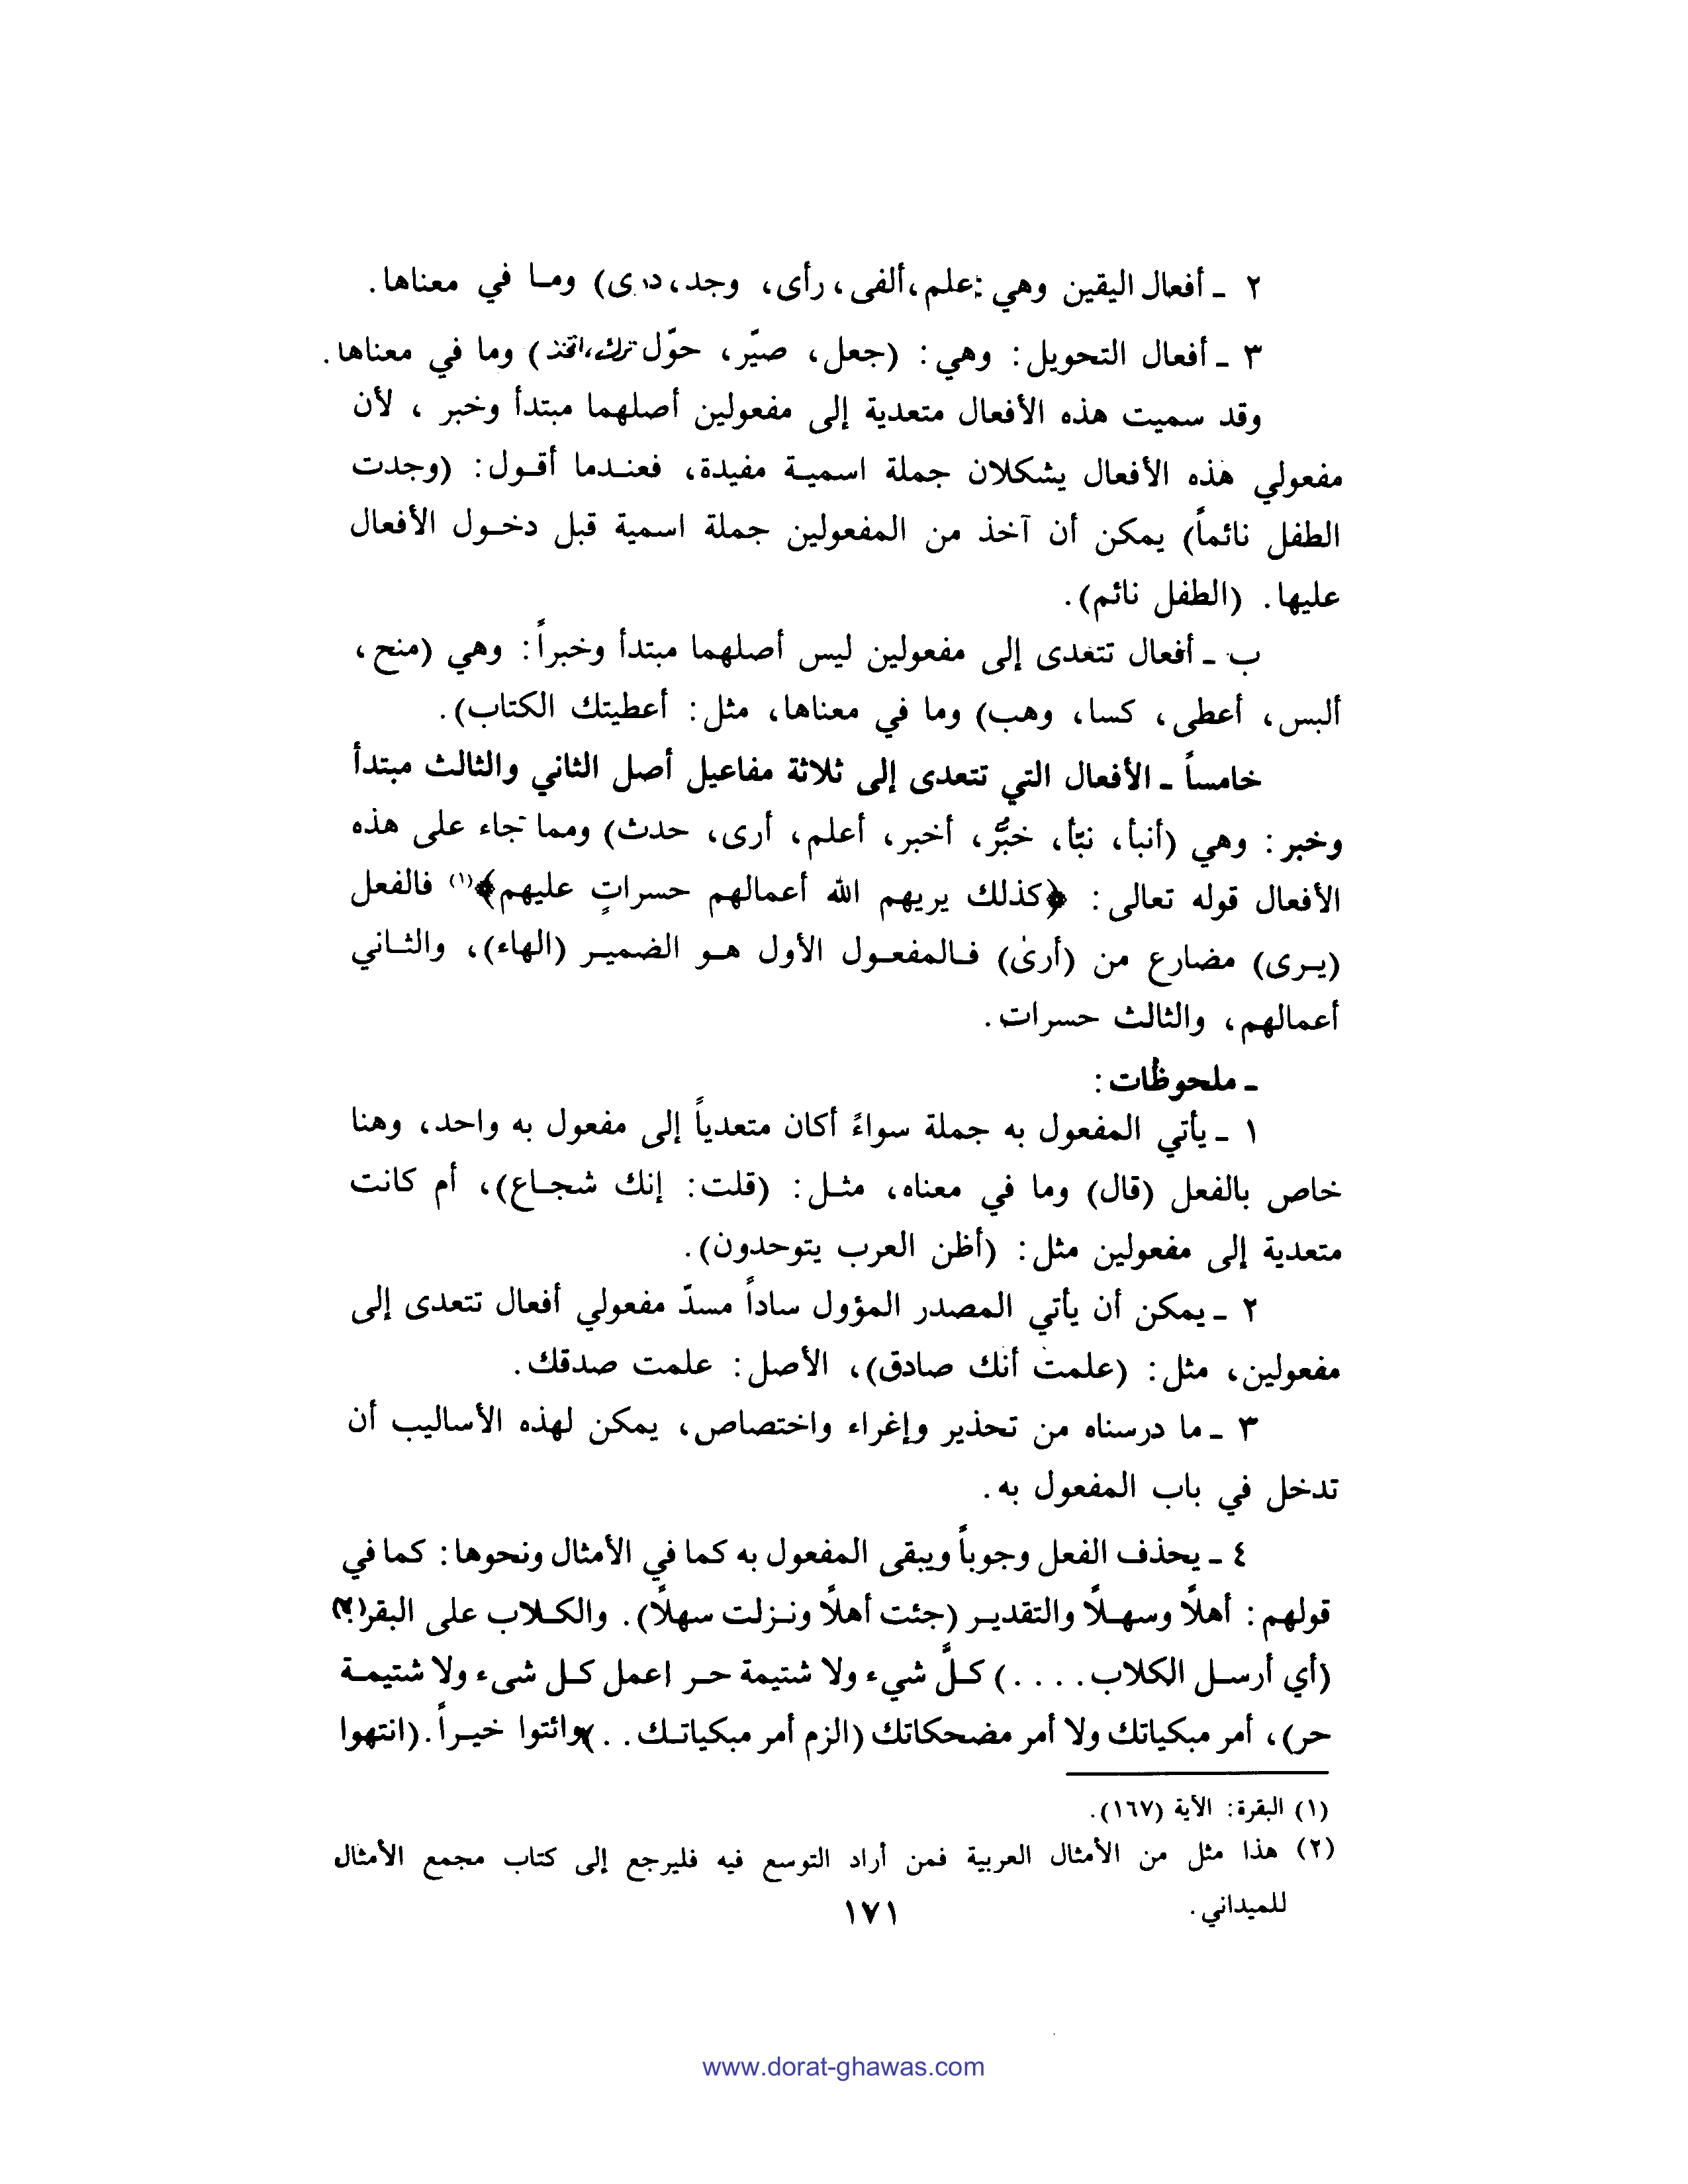 ٢ ـ أفعال اليقين وهي :علم، ألفى، رأى، وجد، درى) وما في معناها.
٣ ـ أفعال التحويل: وهي: (جعل، صيّر، حوّل ترك، اتخذ) وما في معناها.
وقد سميت هذه الأفعال متعدية إلى مفعولين أصلهما مبتدأ وخبر، لأن
مفعولي هذه الأفعال يشكلان جملة اسمية مفيدة، فعندما أقول: (وجدت
الطفل نائماً) يمكن أن آخذ من المفعولين جملة اسمية قبل دخول الأفعال
عليها. (الطفل نائم).
ب ـ أفعال تتعدى إلى مفعولين ليس أصلهما مبتدأ وخبراً: وهي (منح،
ألبس، أعطى، كسا، وهب) وما في معناها، مثل: أعطيتك الكتاب).
خامساً ـ الأفعال التي تتعدى إلى ثلاثة مفاعيل أصل الثاني والثالث مبتدأ
وخبر: وهي (أنبأ، نبّأ، خبَّر، أخبر، أعلم، أرى، حدث) ومما جاء على هذه
الأفعال قوله تعالى: ﴿كذلك يريهم الله أعمالهم حسراتٍ عليهم﴾(١) فالفعل
(يرى) مضارع من (أرى) فالمفعول الأول هو الضمير (الهاء)، والثاني
أعمالهم، والثالث حسرات.
ـ ملحوظات:
١ ـ يأتي المفعول به جملة سواءً أكان متعدياً إلى مفعول به واحد، وهنا
خاص بالفعل (قال) وما في معناه، مثل: (قلت: إنك شجاع)، أم كانت
متعدية إلى مفعولين مثل: (أظن العرب يتوحدون).
٢ ـ يمكن أن يأتي المصدر المؤول ساداً مسدّ مفعولي أفعال تتعدى إلى
مفعولين، مثل: (علمت أنك صادق)، الأصل: علمت صدقك.
٣ ـ ما درسناه من تحذير وإغراء واختصاص، يمكن لهذه الأساليب أن
تدخل في باب المفعول به.
٤ ـ يحذف الفعل وجوباً ويبقى المفعول به كما في الأمثال ونحوها: كما في
قولهم: أهلاً وسهلاً والتقدير (جئت أهلاً ونزلت سهلاً). والكلاب على البقر(٢)
(أي أرسل الكلاب....) كلَّ شيء ولا شتيمة حر اعمل كل شىء ولا شتيمة
حر)، أمر مبكياتك ولا أمر مضحكاتك (الزم أمر مبكياتك..) وائتوا خيراً. (انتهوا
(١) البقرة: الآية (١٦٧).
(٢) هذا مثل من الأمثال العربية فمن أراد التوسع فيه فليرجع إلى كتاب مجمع الأمثال
للميداني.
١٧١
www.dorat-ghawas.com